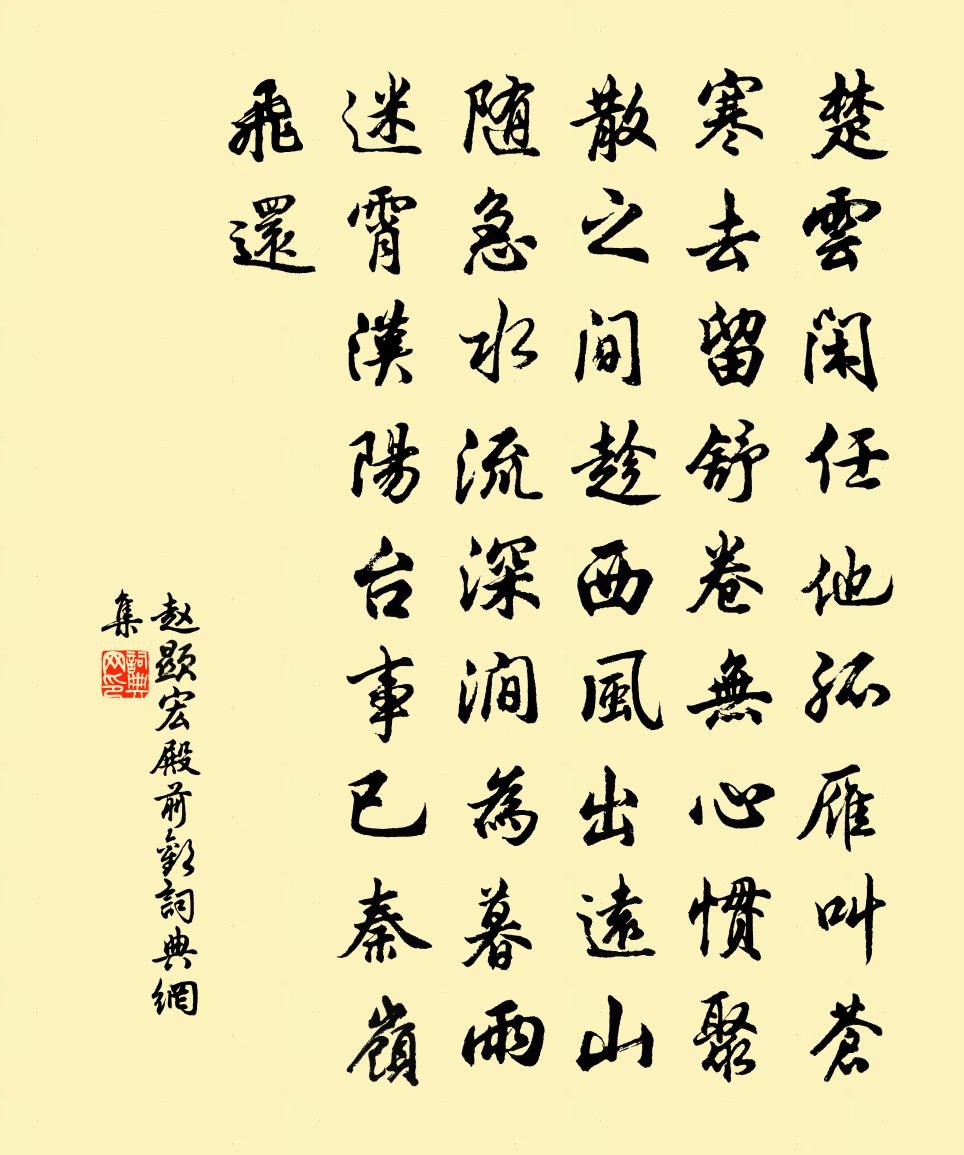 楚雲閑任他孤雁叫蒼
寒去留舒卷無心慣聚
散之间趁西風出遠山
随急水流深澗為暮雨
迷霄漢陽台事已秦嶺
飛還
赵顯宏殿前歡詞典網
集
詞典
网印